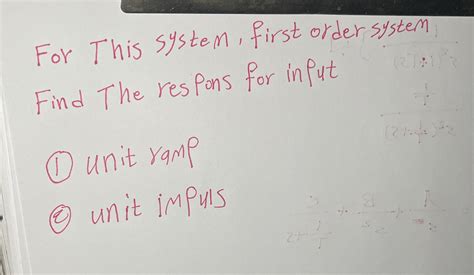 For This system, first order system
Find The respons for input
① unit ramp
② unit impuls